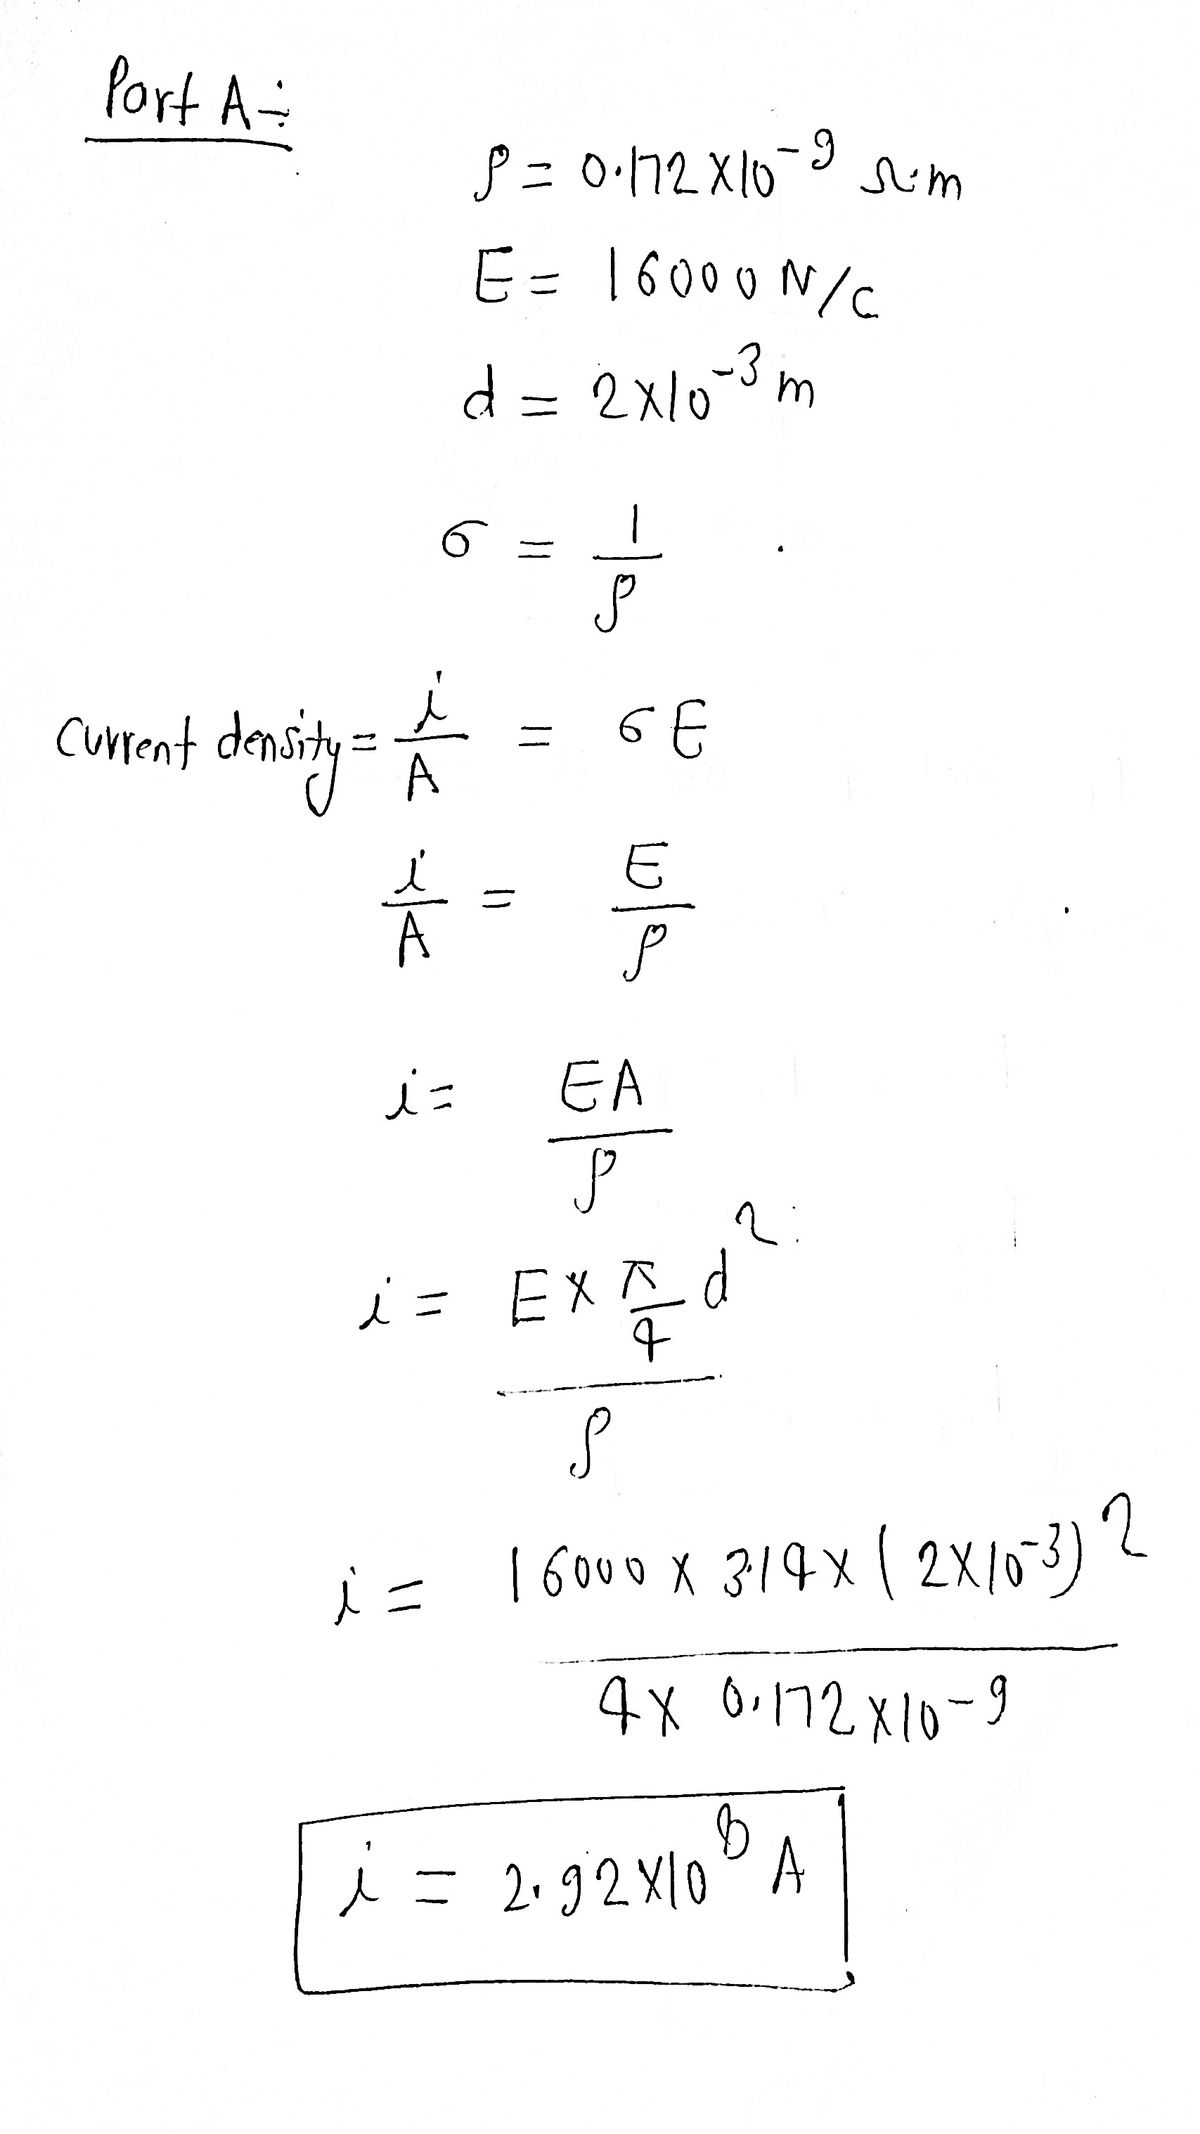 Part A÷
ρ = 0.172 X10⁻⁹ Ω.m
E = 16000 N/C
d = 2X10⁻³ m
σ = 1/ρ
Current density = i/A = σE
i/A = E/ρ
i = EA/ρ
i = E X π/4 d² / ρ
i = 16000 X 3.14 X (2X10⁻³)² / 4X 0.172 X10⁻⁹
i = 2.92 X10⁸ A